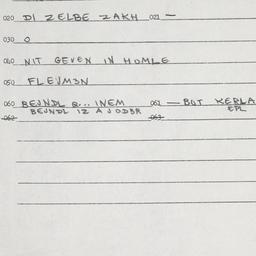 020 DI ZELBE ZAKH 021 —
030 O
040 NIT GEVEN IN HOMLE
050 FLEVM3N
060 BEJNDL Q... INEM 061 — BOT KERLA
062 BEJNDL IZ A JODER 063 EPL